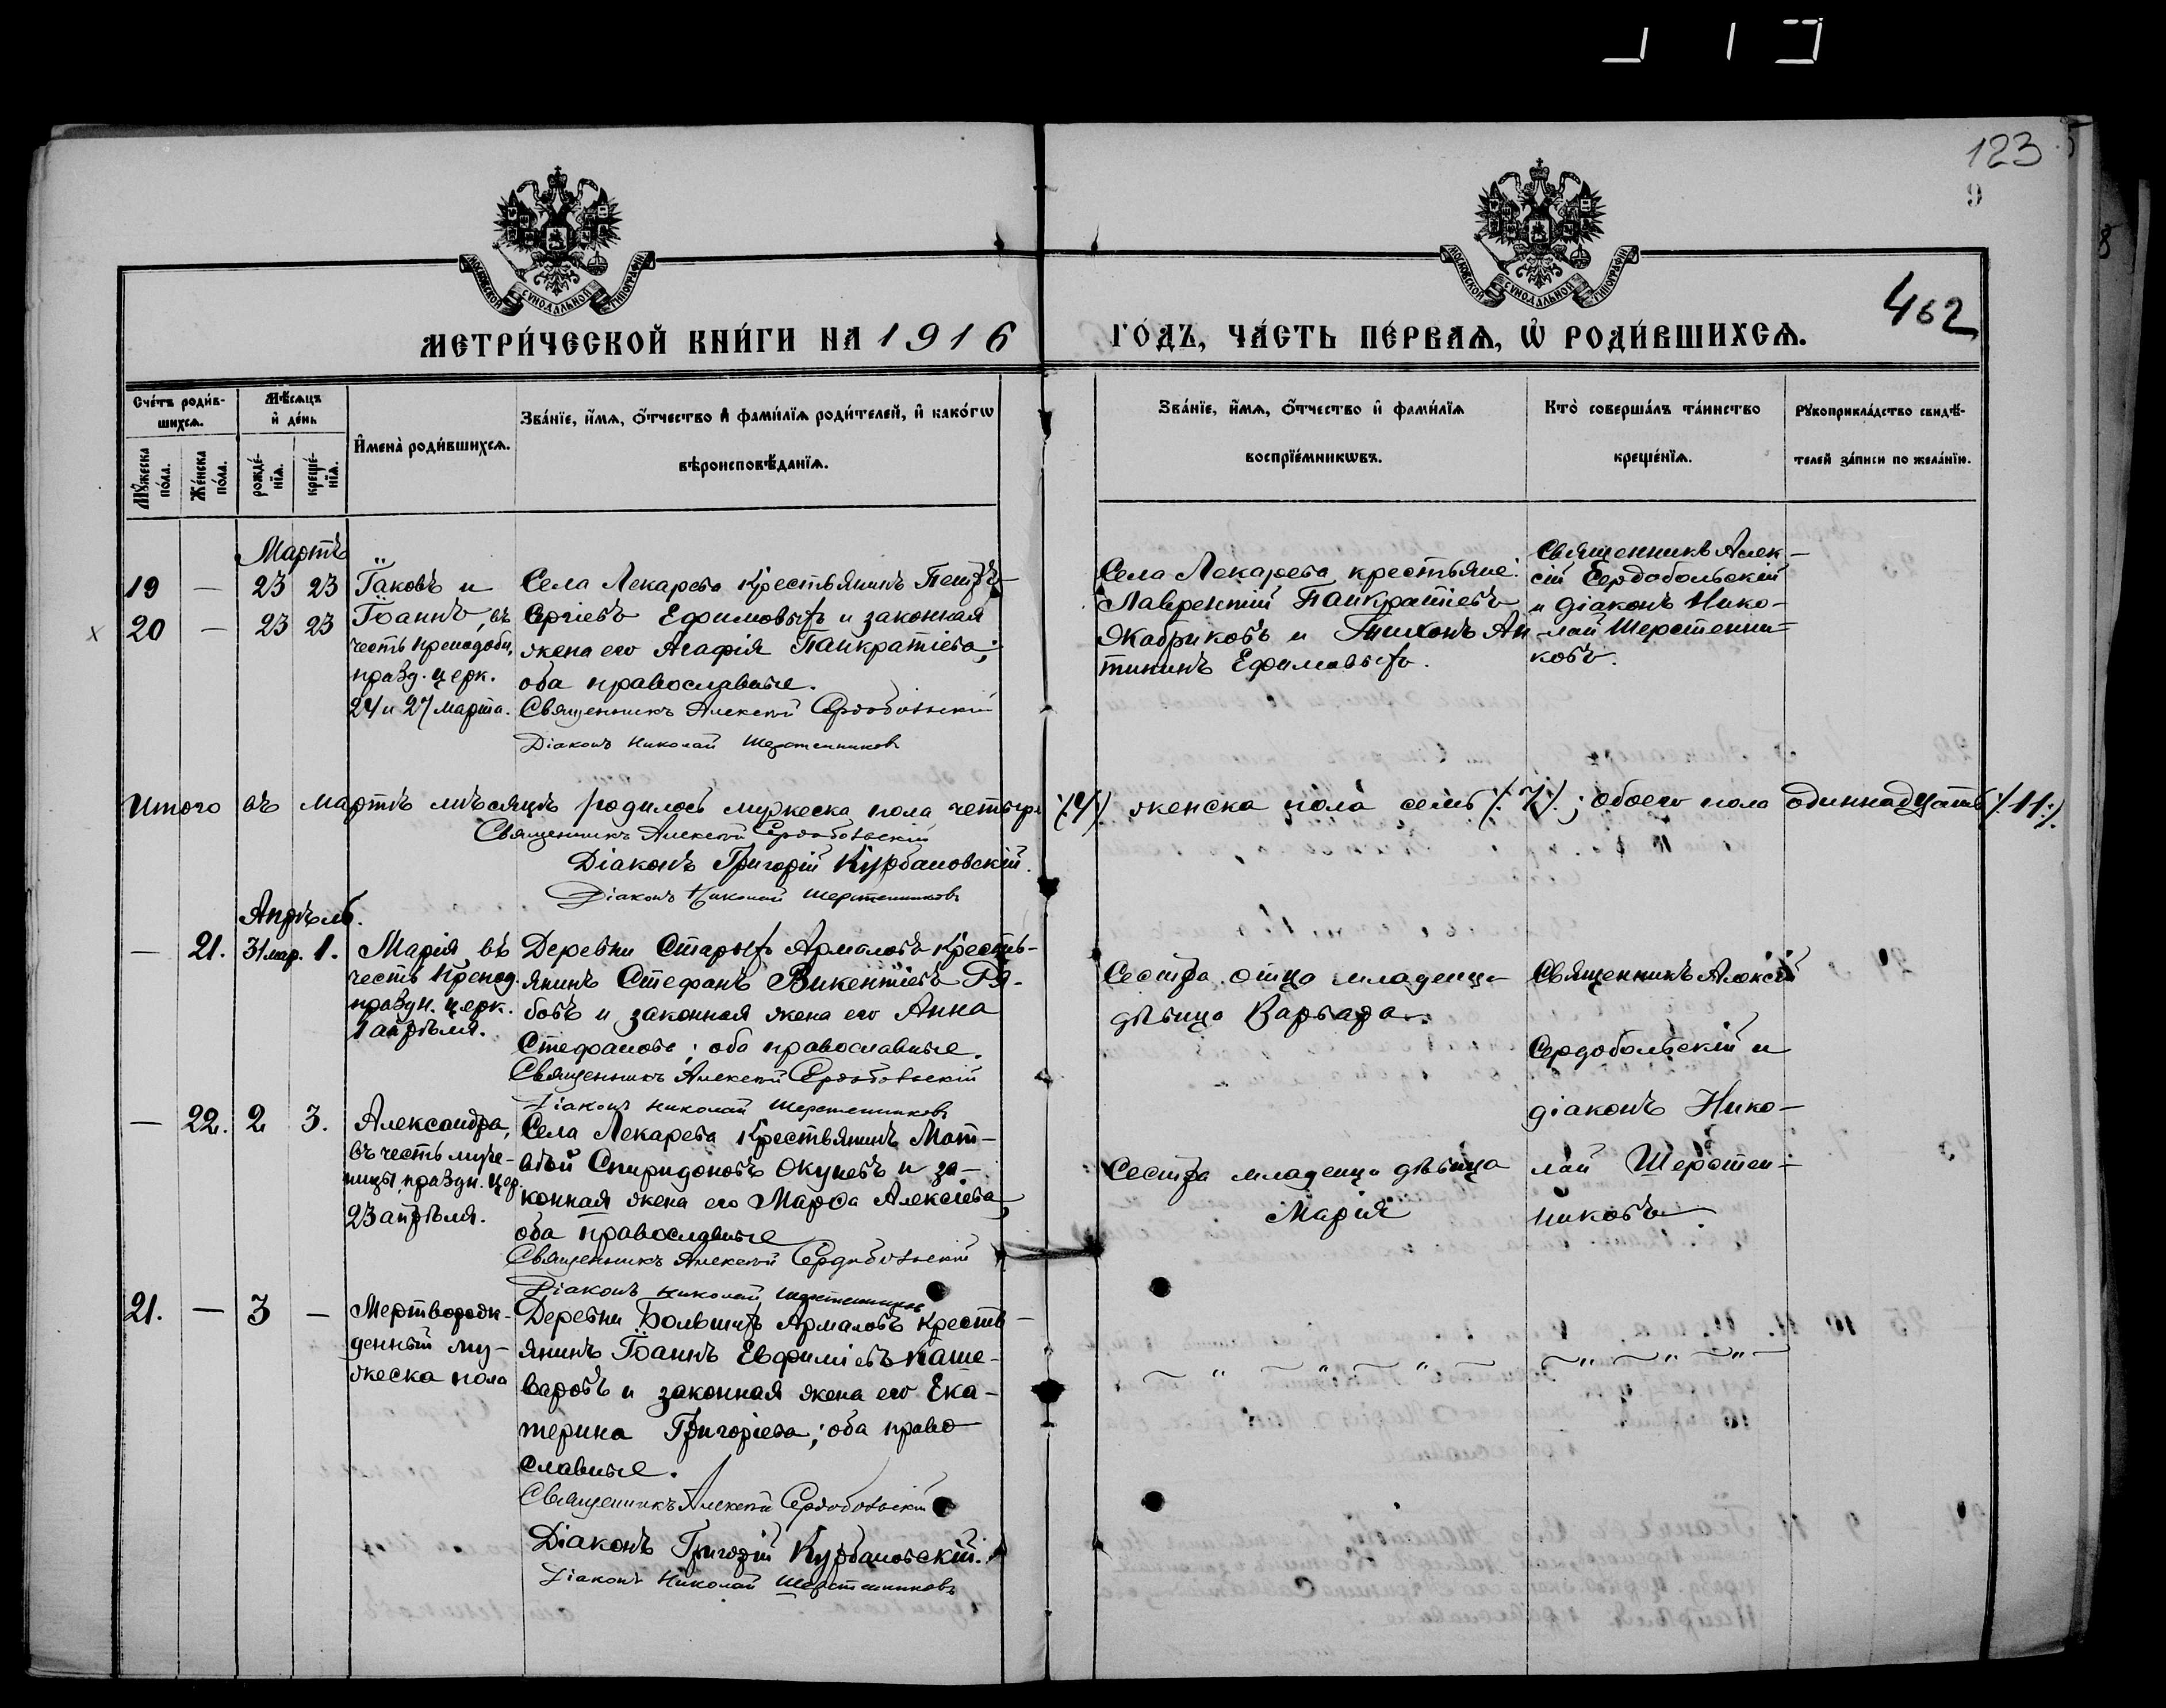 123
9
МОСКОВСКОЙ СѴНОДАЛЬНОЙ ТИПОГРАФІИ
МОСКОВСКОЙ СѴНОДАЛЬНОЙ ТИПОГРАФІИ
462
МЕТРИ́ЧЕСКОЙ КНИ́ГИ НА 1916 ГО́ДЪ, ЧА́СТЬ ПЕ́РВАѦ, Ѡ҆ РОДИ́ВШИХСѦ.
Сче́тъ роди́в-
шихсѧ.
Мѣ́сѧцъ
и҆ де́нь
Мꙋ́жеска по́ла.
Же́нска по́ла.
рожде́-
нїѧ.
креще́-
нїѧ.
И҆мена̀ роди́вшихсѧ.
Зва́нїе, и҆́мѧ, ѻ҆́тчество и҆ фами́лїѧ роди́телей, и҆ како́гѡ
вѣроисповѣ́данїѧ.
Зва́нїе, и҆́мѧ, ѻ҆́тчество и҆ фами́лїѧ
воспрїе́мникѡвъ.
Кто̀ соверша́лъ та́инство
креще́нїѧ.
Рꙋкоприкла́дство свидѣ́-
телей за́писи по жела́нїю.
Мартъ
19 — 23 23
20 — 23 23
Іаковъ и
Іоаннъ, въ
честь преподобн,
празд. церк.
24 и 27 марта.
Села Лекарева крестьянинъ Петръ
Сергіевъ Ефимовыхъ и законная
жена его Агафія Панкратіева;
оба православные.
Священникъ Алексій Сердобольскій
Діаконъ Николай Шерстенниковъ
Села Лекарева крестьяне:
Лаврентій Панкратіевъ
Жабриковъ и Тихонъ Ан
типинъ Ефимовыхъ.
Священникъ Алек-
сій Сердобольскій
и діаконъ Нико-
лай Шерстенни-
ковъ.
Итого въ мартѣ мѣсяцѣ родилось мужеска пола четыре (:4:) женска пола семь (:7:); обоего пола одиннадцать (:11:).
Священникъ Алексій Сердобольскій
Діаконъ Григорій Курбановскій.
Діаконъ Николай Шерстенниковъ
Апрѣль.
— 21. 31 мар. 1.
Марія въ
честь препод.
праздн. церк.
1 апрѣля.
Деревни Старыхъ Армаловъ кресть-
янинъ Стефанъ Викентіевъ Ря-
бовъ и законная жена его Анна
Стефанова; оба православные.
Священникъ Алексій Сердобольскій
Діаконъ Николай Шерстенниковъ
Сестра отца младенца
дѣвица Варвара.
Священникъ Алексій
Сердобольскій и
діаконъ Нико-
лай Шерстен-
никовъ
— 22. 2 3.
Александра,
въ честь муче-
ницы, праздн. цер.
23 апрѣля.
Села Лекарева крестьянинъ Мат-
вѣй Спиридоновъ Окуневъ и за-
конная жена его Марфа Алексіева,
оба православные
Священникъ Алексій Сердобольскій
Діаконъ Николай Шерстенниковъ
Сестра младенца дѣвица
Марія
21. — 3 —
Мертворож-
денный му-
жеска пола
Деревни Большихъ Армаловъ кресть-
янинъ Іоаннъ Евфиміевъ Каше-
варовъ и законная жена его Ека-
терина Григоріева; оба право
славные.
Священникъ Алексій Сердобольскій
Діаконъ Григорій Курбановскій.
Діаконъ Николай Шерстенниковъ